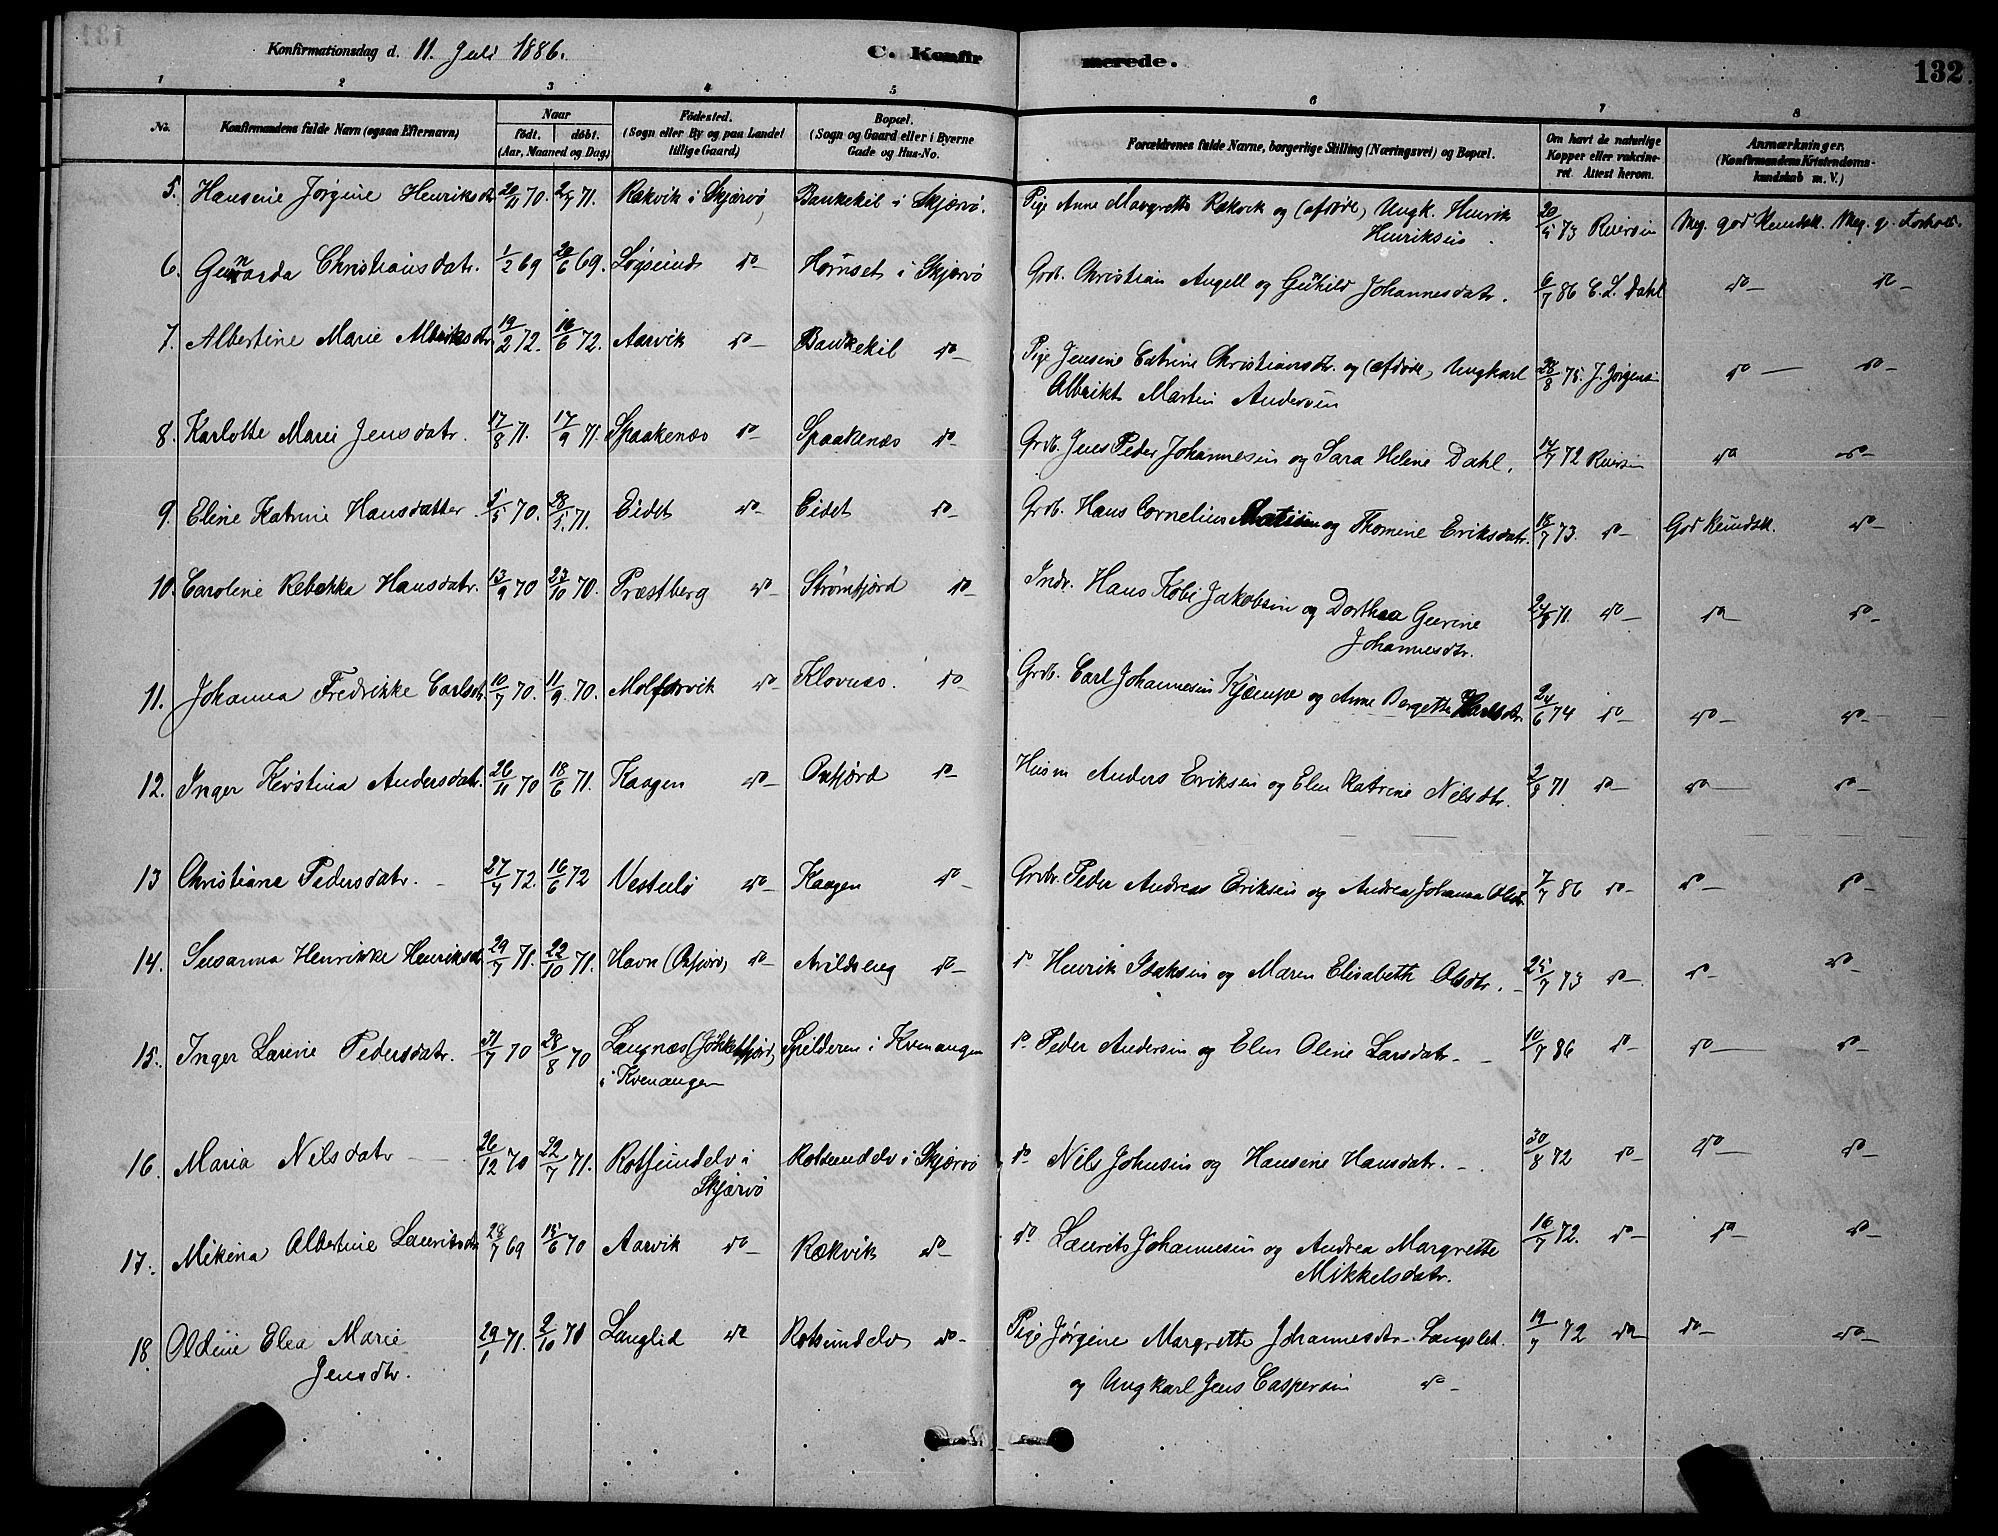 Konfirmationsdag d. 11. Juli 1886.
C. Konfirmerede.
132
1 2 3 4 5 6 7 8
No. Konfirmandens fulde Navn (ogsaa Efternavn) Naar födt. döbt. (Aar, Maaned og Dag) Födested. (Sogn eller By og paa Landet tillige Gaard) Bopæl. (Sogn og Gaard eller i Byerne Gade og Hus-No. Forældrenes fulde Navne, borgerlige Stilling (Næringsvei) og Bopæl. Om havt de naturlige Kopper eller vaccineret. Attest herom. Anmærkninger. (Konfirmandens Kristendomskundskab m. V.)
5. Hansine Jørgine Henriksdtr 20/11 70. 2/7 71. Rakvik i Skjærvø Bankekil i Skjærvø. Pige Anne Margrethe Rakvik og (afdøde) Ungk. Henrik Henriksen. 20/5 73 Reiersen Meg. god Kundsk. Meg. g. Forhold.
6. Gunnarda Christiansdatr. 1/2 69 20/6 69. Løgsund do Hamset i Skjærvø Grdb. Christian Angell og Gunhild Johannesdatr. 6/7 86 E. L. Dahl do do
7. Albertine Marie Albriktsdtr 19/2 72. 16/6 72. Aarvik do Bankekil do Pige Jensine Catrine Christiansdtr. og (afdøde) Ungkarl Albrikt Martin Andersen 28/8 75. J. Jörgens. do do
8. Karlotte Marie Jensdatr. 17/8 71. 17/9 71. Spaakenæs do Spaakenæs do Grdb. Jens Peder Johannesen og Sara Helene Dahl. 17/7 72 Reiersen do do
9. Eline Katrine Hansdatter 5/5 70. 28/1 71. Eidet do Eidet do Grdb. Hans Cornelius Matisen og Thomine Eriksdatr. 18/7 73. do God Kundsk. do
10. Caroline Rebekka Hansdatr. 13/9 70 23/10 70. Præstberg do Strømfjord do Indr. Hans Kobi Jakobsen og Dorthea Geerine Johannesdtr. 24/8 71. do do do
11. Johanna Fredrikke Carlsdtr 10/7 70. 11/9 70. Molforvik do Klovnæs. do Grdb. Carl Johannesen Kjæmpe og Anne Bergette Karlsdtr. 24/6 74 do do do
12. Inger Kirstina Andersdatr. 26/11 70 18/6 71. Kaagen do Oxfjord do Husm Anders Eriksen og Elen Katrine Nilsdtr. 2/8 71 do do do
13 Christiane Pedersdatr. 27/4 72. 16/6 72 Vesterlø do Kaagen do Grdbr. Peder Andreas Eriksen og Andrea Johanna Olsdtr. 7/7 86 do do do
14. Susanna Henrikke Henriksdtr 29/7 71. 22/10 71. Havn (Oxfjord) do Avildseng do do Henrik Isaksen og Maren Elisabeth Olsdtr. 25/7 73 do do do
15. Inger Larine Pedersdatr. 31/7 70 28/8 70 Langnæs (Jökkelfjord) i Kvenangen Spilderen i Kvenangen do Peder Andersen og Elen Oline Larsdatr. 10/7 86 do do do
16. Maria Nilsdatr 26/12 70 22/7 71. Rotsundelv i Skjærvø Rotsundelv i Skjærvø do Nils Johnsen og Hansine Hansdatr. 30/8 72 do do do
17. Mikina Albertine Lauritsdtr 28/7 69 15/6 70 Aarvik do Rækvik do do Laurits Johannesen og Andrea Margrette Mikkelsdatr. 16/7 72. do do do
18. Oldine Elea Marie Jensdtr. 29/1 71. 2/10 71 Langlid do Rotsundelv do Pige Jørgine Margrette Johannesdtr. Langslet. og Ungkarl Jens Caspersen do 19/7 72 do do do